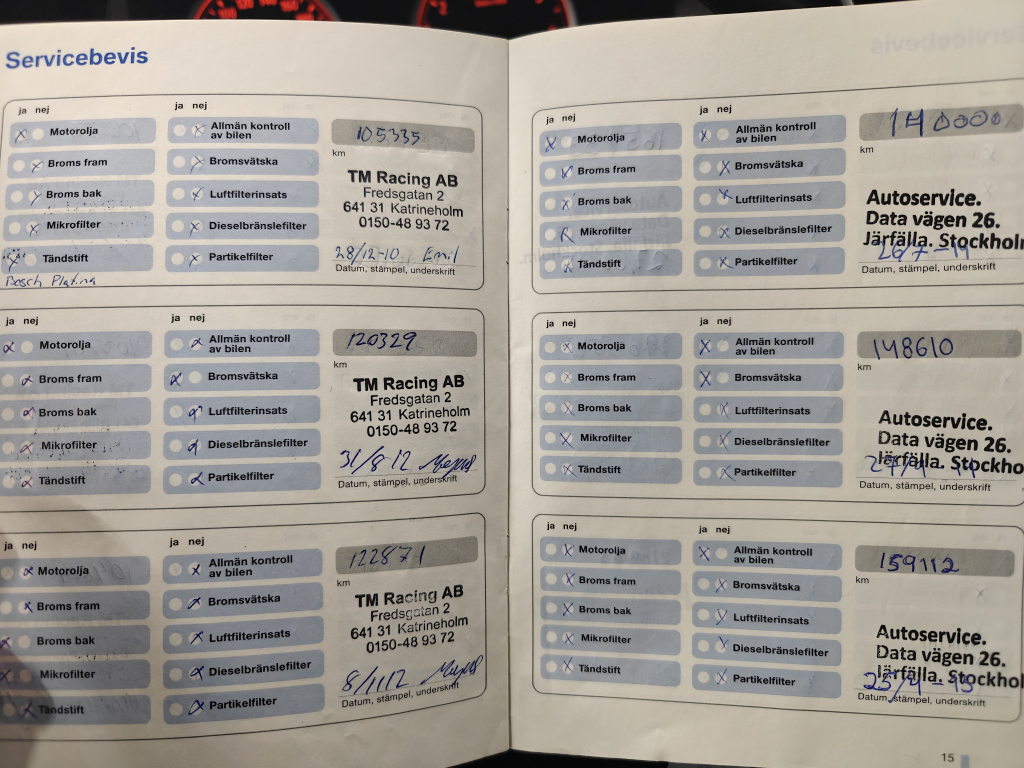 Servicebevis
ja nej
ja nej
Motorolja
Allmän kontroll
av bilen
105335
km
Broms fram
Bromsvätska
Broms bak
Luftfilterinsats
Mikrofilter
Dieselbränslefilter
Tändstift
Partikelfilter
Bosch Platina
TM Racing AB
Fredsgatan 2
641 31 Katrineholm
0150-48 93 72
28/12-10 Emil
Datum, stämpel, underskrift
ja nej
ja nej
Motorolja
Allmän kontroll
av bilen
120329
km
Broms fram
Bromsvätska
Broms bak
Luftfilterinsats
Mikrofilter
Dieselbränslefilter
Tändstift
Partikelfilter
TM Racing AB
Fredsgatan 2
641 31 Katrineholm
0150-48 93 72
31/8-12
Datum, stämpel, underskrift
ja nej
ja nej
Motorolja
Allmän kontroll
av bilen
122871
km
Broms fram
Bromsvätska
Broms bak
Luftfilterinsats
Mikrofilter
Dieselbränslefilter
Tändstift
Partikelfilter
TM Racing AB
Fredsgatan 2
641 31 Katrineholm
0150-48 93 72
Datum, stämpel, underskrift
ja nej
ja nej
Motorolja
Allmän kontroll
av bilen
km
Broms fram
Bromsvätska
Broms bak
Luftfilterinsats
Mikrofilter
Dieselbränslefilter
Tändstift
Partikelfilter
Autoservice.
Data vägen 26.
Järfälla. Stockholm
Datum, stämpel, underskrift
ja nej
ja nej
Motorolja
Allmän kontroll
av bilen
148610
km
Broms fram
Bromsvätska
Broms bak
Luftfilterinsats
Mikrofilter
Dieselbränslefilter
Tändstift
Partikelfilter
Autoservice.
Data vägen 26.
Järfälla. Stockho
Datum, stämpel, underskrift
ja nej
ja nej
Motorolja
Allmän kontroll
av bilen
159112
km
Broms fram
Bromsvätska
Broms bak
Luftfilterinsats
Mikrofilter
Dieselbränslefilter
Tändstift
Partikelfilter
Autoservice.
Data vägen 26.
Järfälla. Stockho
Datum, stämpel, underskrift
15